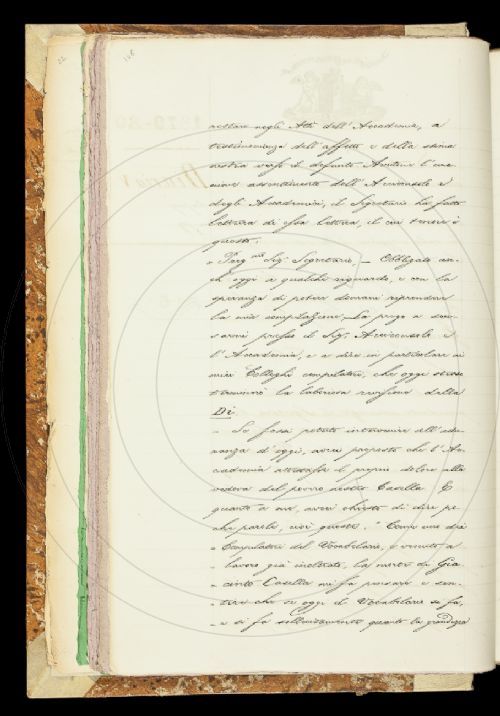 126
restare negli Atti dell'Accademia, a
testimonianza dell'affetto e della stima
nostra verso il defunto
assentimento dell'Arciconsolo e
degli Accademici, il Segretario ha fatto
lettura di essa lettera, il cui tenore è
questo:
" Sig. Segretario, — Obbligato an-
ch'oggi a qualche riguardo, e con la
speranza di poter domani riprendere
la mia compilazione, La prego a scu-
sarmi presso il Sig. Arciconsolo e
l'Accademia, e a dire in particolare ai
miei Colleghi compilatori, che oggi
la laboriosa revisione della
Di
" Se fossi potuto intervenire all'adu-
nanza di oggi, avrei proposto che l'Ac-
cademia attestasse il proprio dolore alla
vedova del povero nostro Casella. E
quanto a me, avrei chiesto di dire po-
che parole, cioè queste: " Come uno dei
" Compilatori del Vocabolario, e venuto a
" lavoro già inoltrato, la morte di Gia-
" cinto Casella mi fa pensare e sen-
" tire che se oggi il Vocabolario si fa,
" e si fa sollecitamente quanto la grandezza